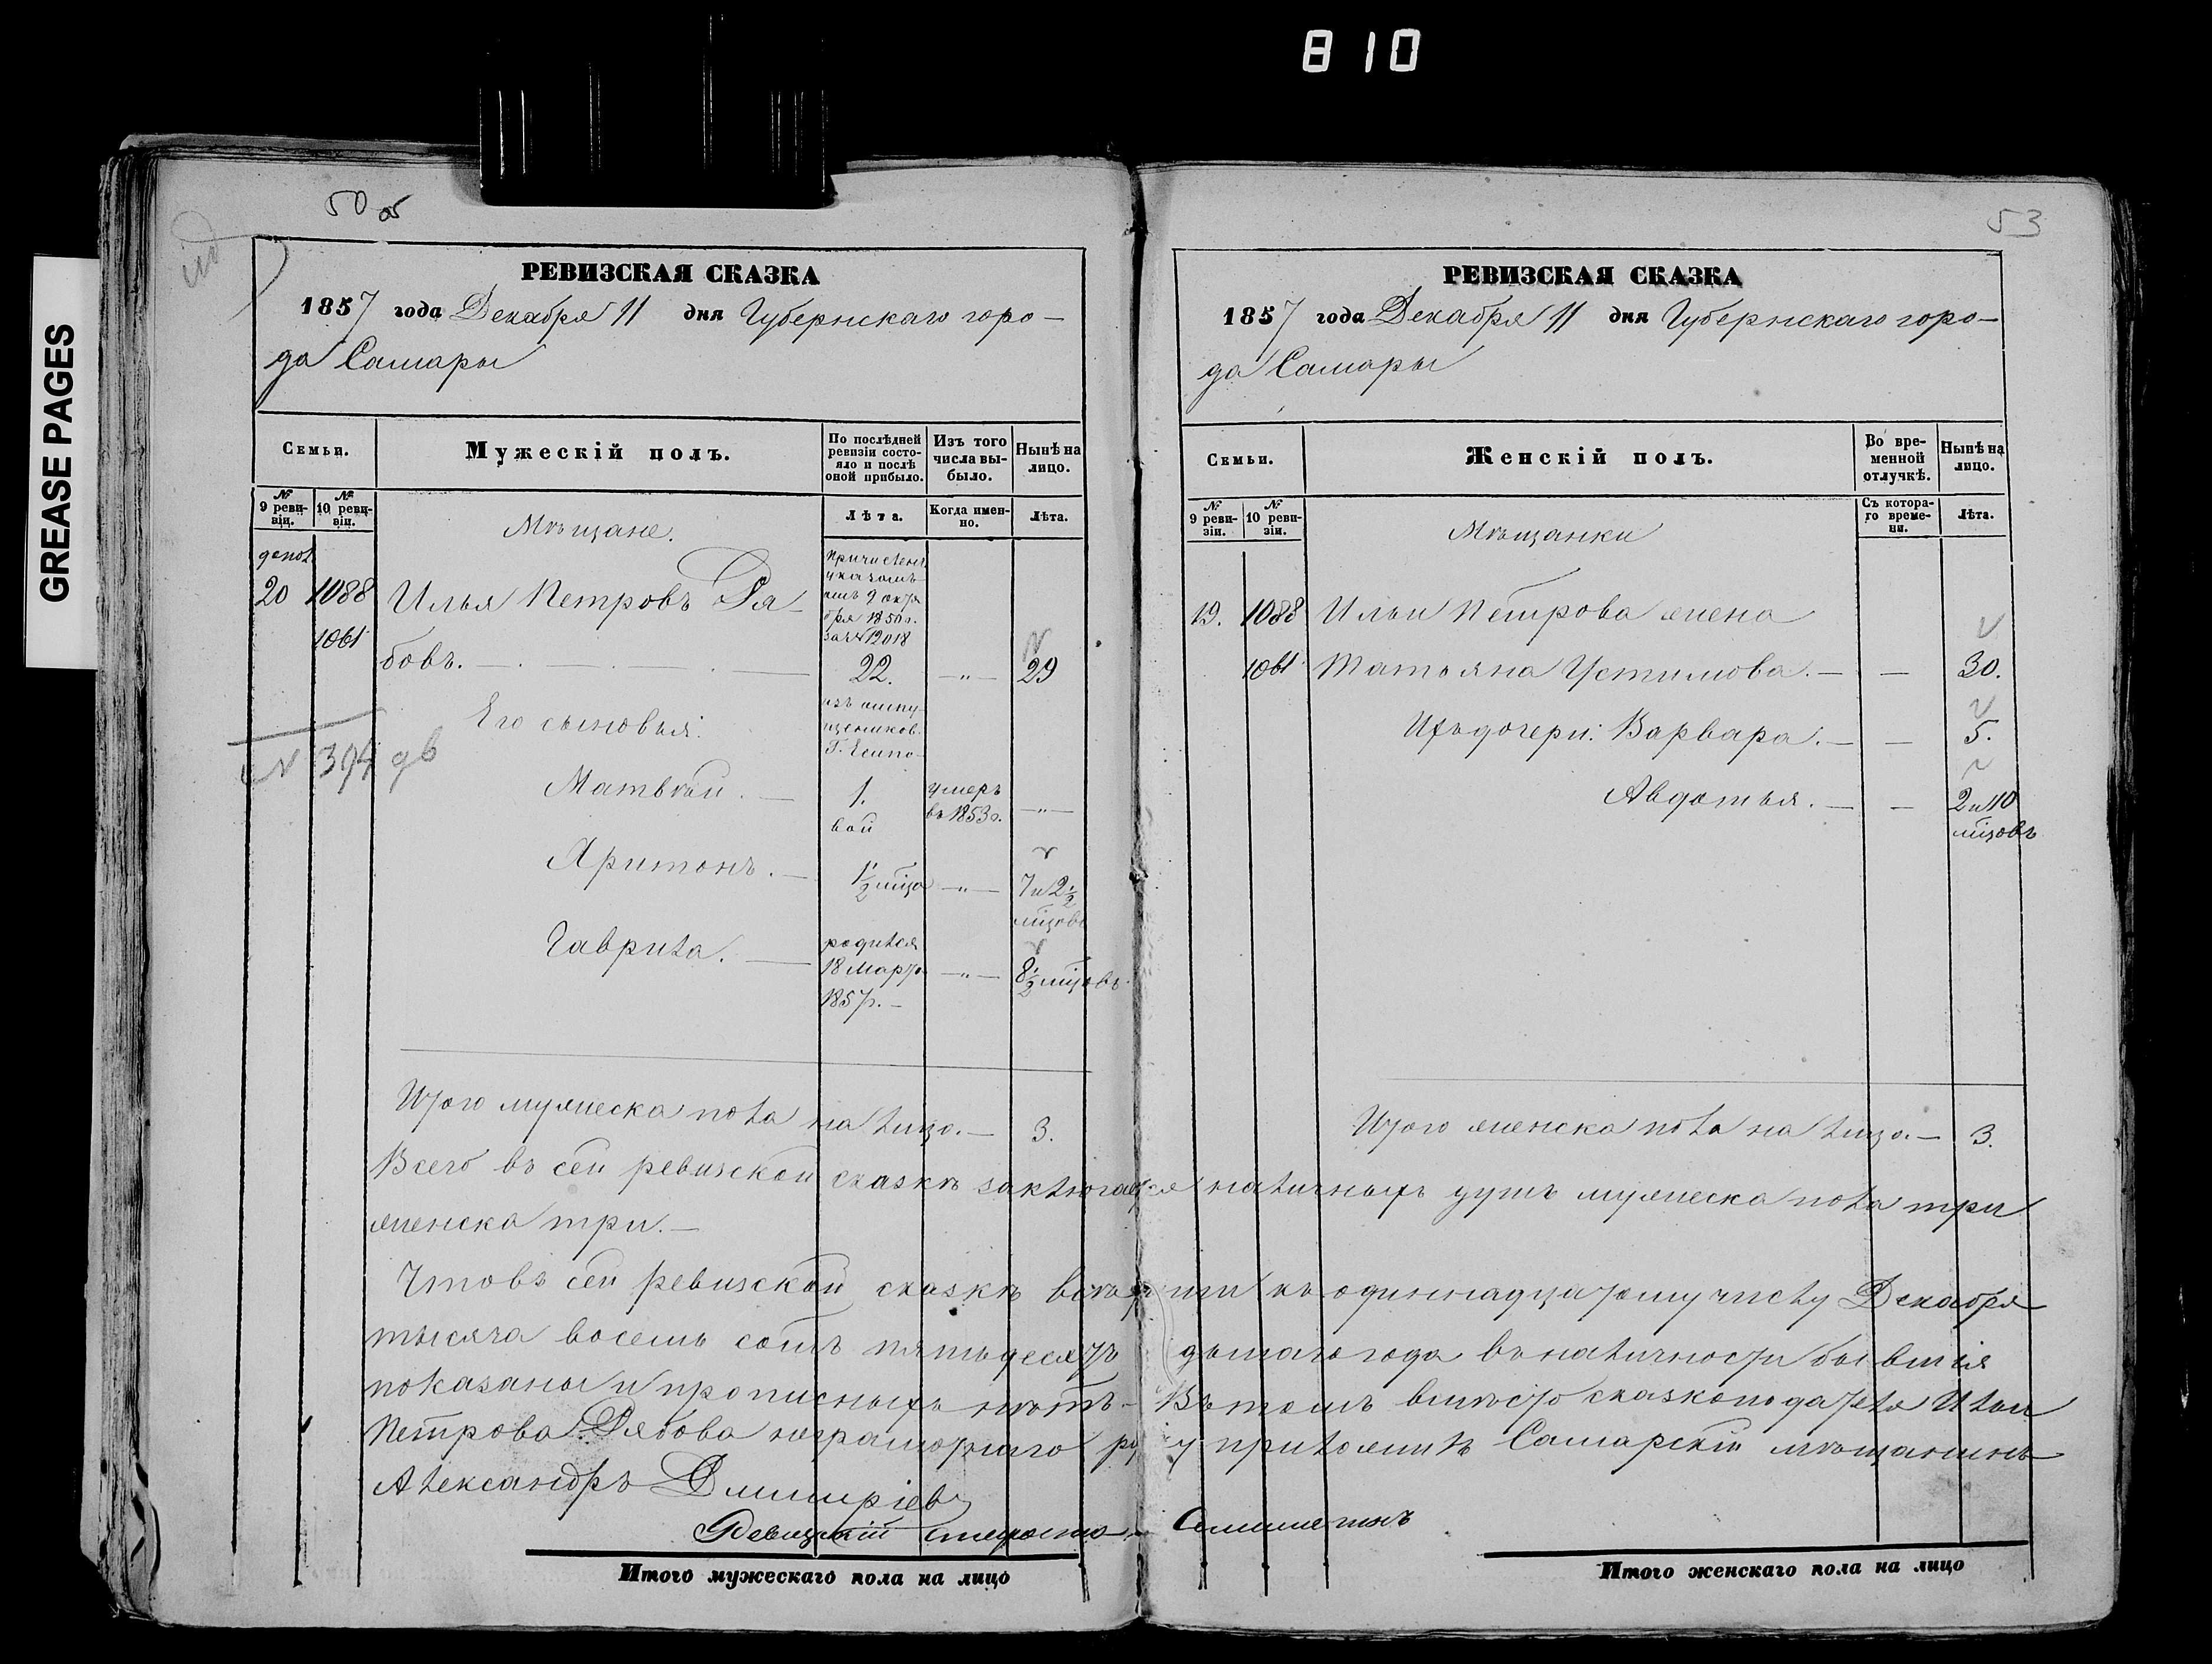 810
GREASE PAGES
50 об
РЕВИЗСКАЯ СКАЗКА
1857 года Декабря 11 дня Губернскаго горо-
да Самары
Семьи.
Мужескій полъ.
По послѣдней ревизіи состояло и послѣ оной прибыло.
Изъ того числа выбыло.
Нынѣ на лицо.
№ 9 ревизіи.
№ 10 ревизіи.
Лѣта.
Когда именно.
Лѣта.
Мѣщане.
допол.
20 1088 Илья Петровъ Ря-
1061
бовъ. 22. —"— 29
Причисленъ
указомъ
отъ 9 октя
бря 1850 г.
за № 12018
Его сыновья:
изъ отпу-
щенниковъ
Г. Есипо-
вой
№ 394 дв
Матвѣй. — 1. умеръ въ 1853 г. —"—
Харитонъ. — 1½ мѣца —"— 7 и 2½ мѣцовъ
Гаврила. — родился 18 Марта 1857 г. — —"— 8½ мѣцовъ.
Итого мужеска пола на лицо. — 3.
53
РЕВИЗСКАЯ СКАЗКА
1857 года Декабря 11 дня Губернскаго горо-
да Самары
Семьи.
Женскій полъ.
Во временной отлучкѣ.
Нынѣ на лицо.
№ 9 ревизіи.
№ 10 ревизіи.
Съ котораго времени.
Лѣта.
Мѣщанки
19. 1088 Ильи Петрова жена
1061 Татьяна Устимова. — — 30.
Ихъ дочери: Варвара. — — 5.
Авдотья. — — 2 и 10 мѣцовъ
Итого женска пола на лицо. — 3.
Всего въ сей ревизской сказкѣ заключается наличныхъ душъ мужеска пола три
женска три. —
Что въ сей ревизской сказкѣ всѣ къ одиннадцатому числу Декабря
тысяча восемь сотъ пятьдесятъ года въ наличности бывшія
показаны и прописныхъ нѣтъ - Въ томъ вмѣсто сказкоподателя Ильи
Петрова Рябова неграмотнаго руку приложилъ Самарскій мѣщанинъ
Александръ Дмитріевъ
Ревизскій староста
Итого мужескаго пола на лицо
Итого женскаго пола на лицо